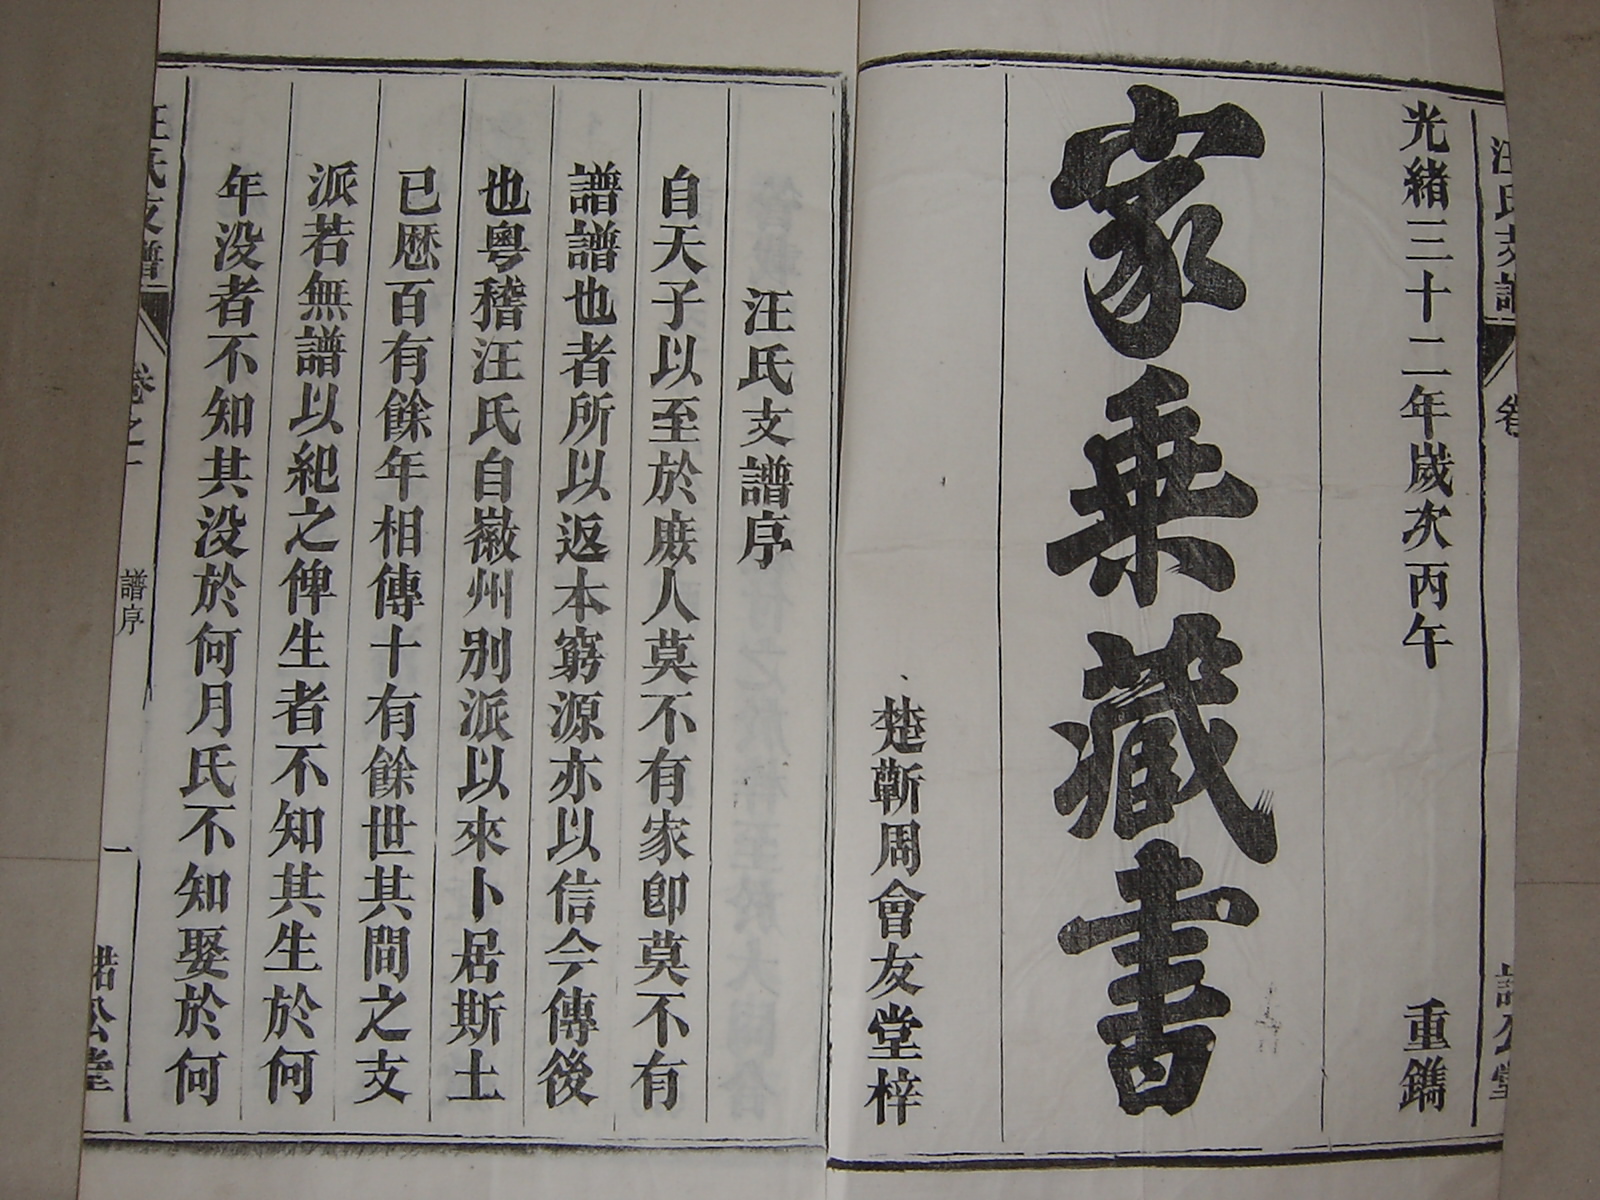 光緒三十二年嵗次丙午 重鐫
家乗藏書
楚蘄周會友堂梓
汪氏支譜序
自天子以至於庻人莫不有家卽莫不有
譜譜也者所以返本窮源亦以信今傳後
也粤稽汪氏自徽州别派以來卜居斯土
已歷百有餘年相傳十有餘世其間之支
派若無譜以紀之俾生者不知其生於何
年没者不知其没於何月氏不知娶於何
汪氏支譜
卷之一
譜序
一